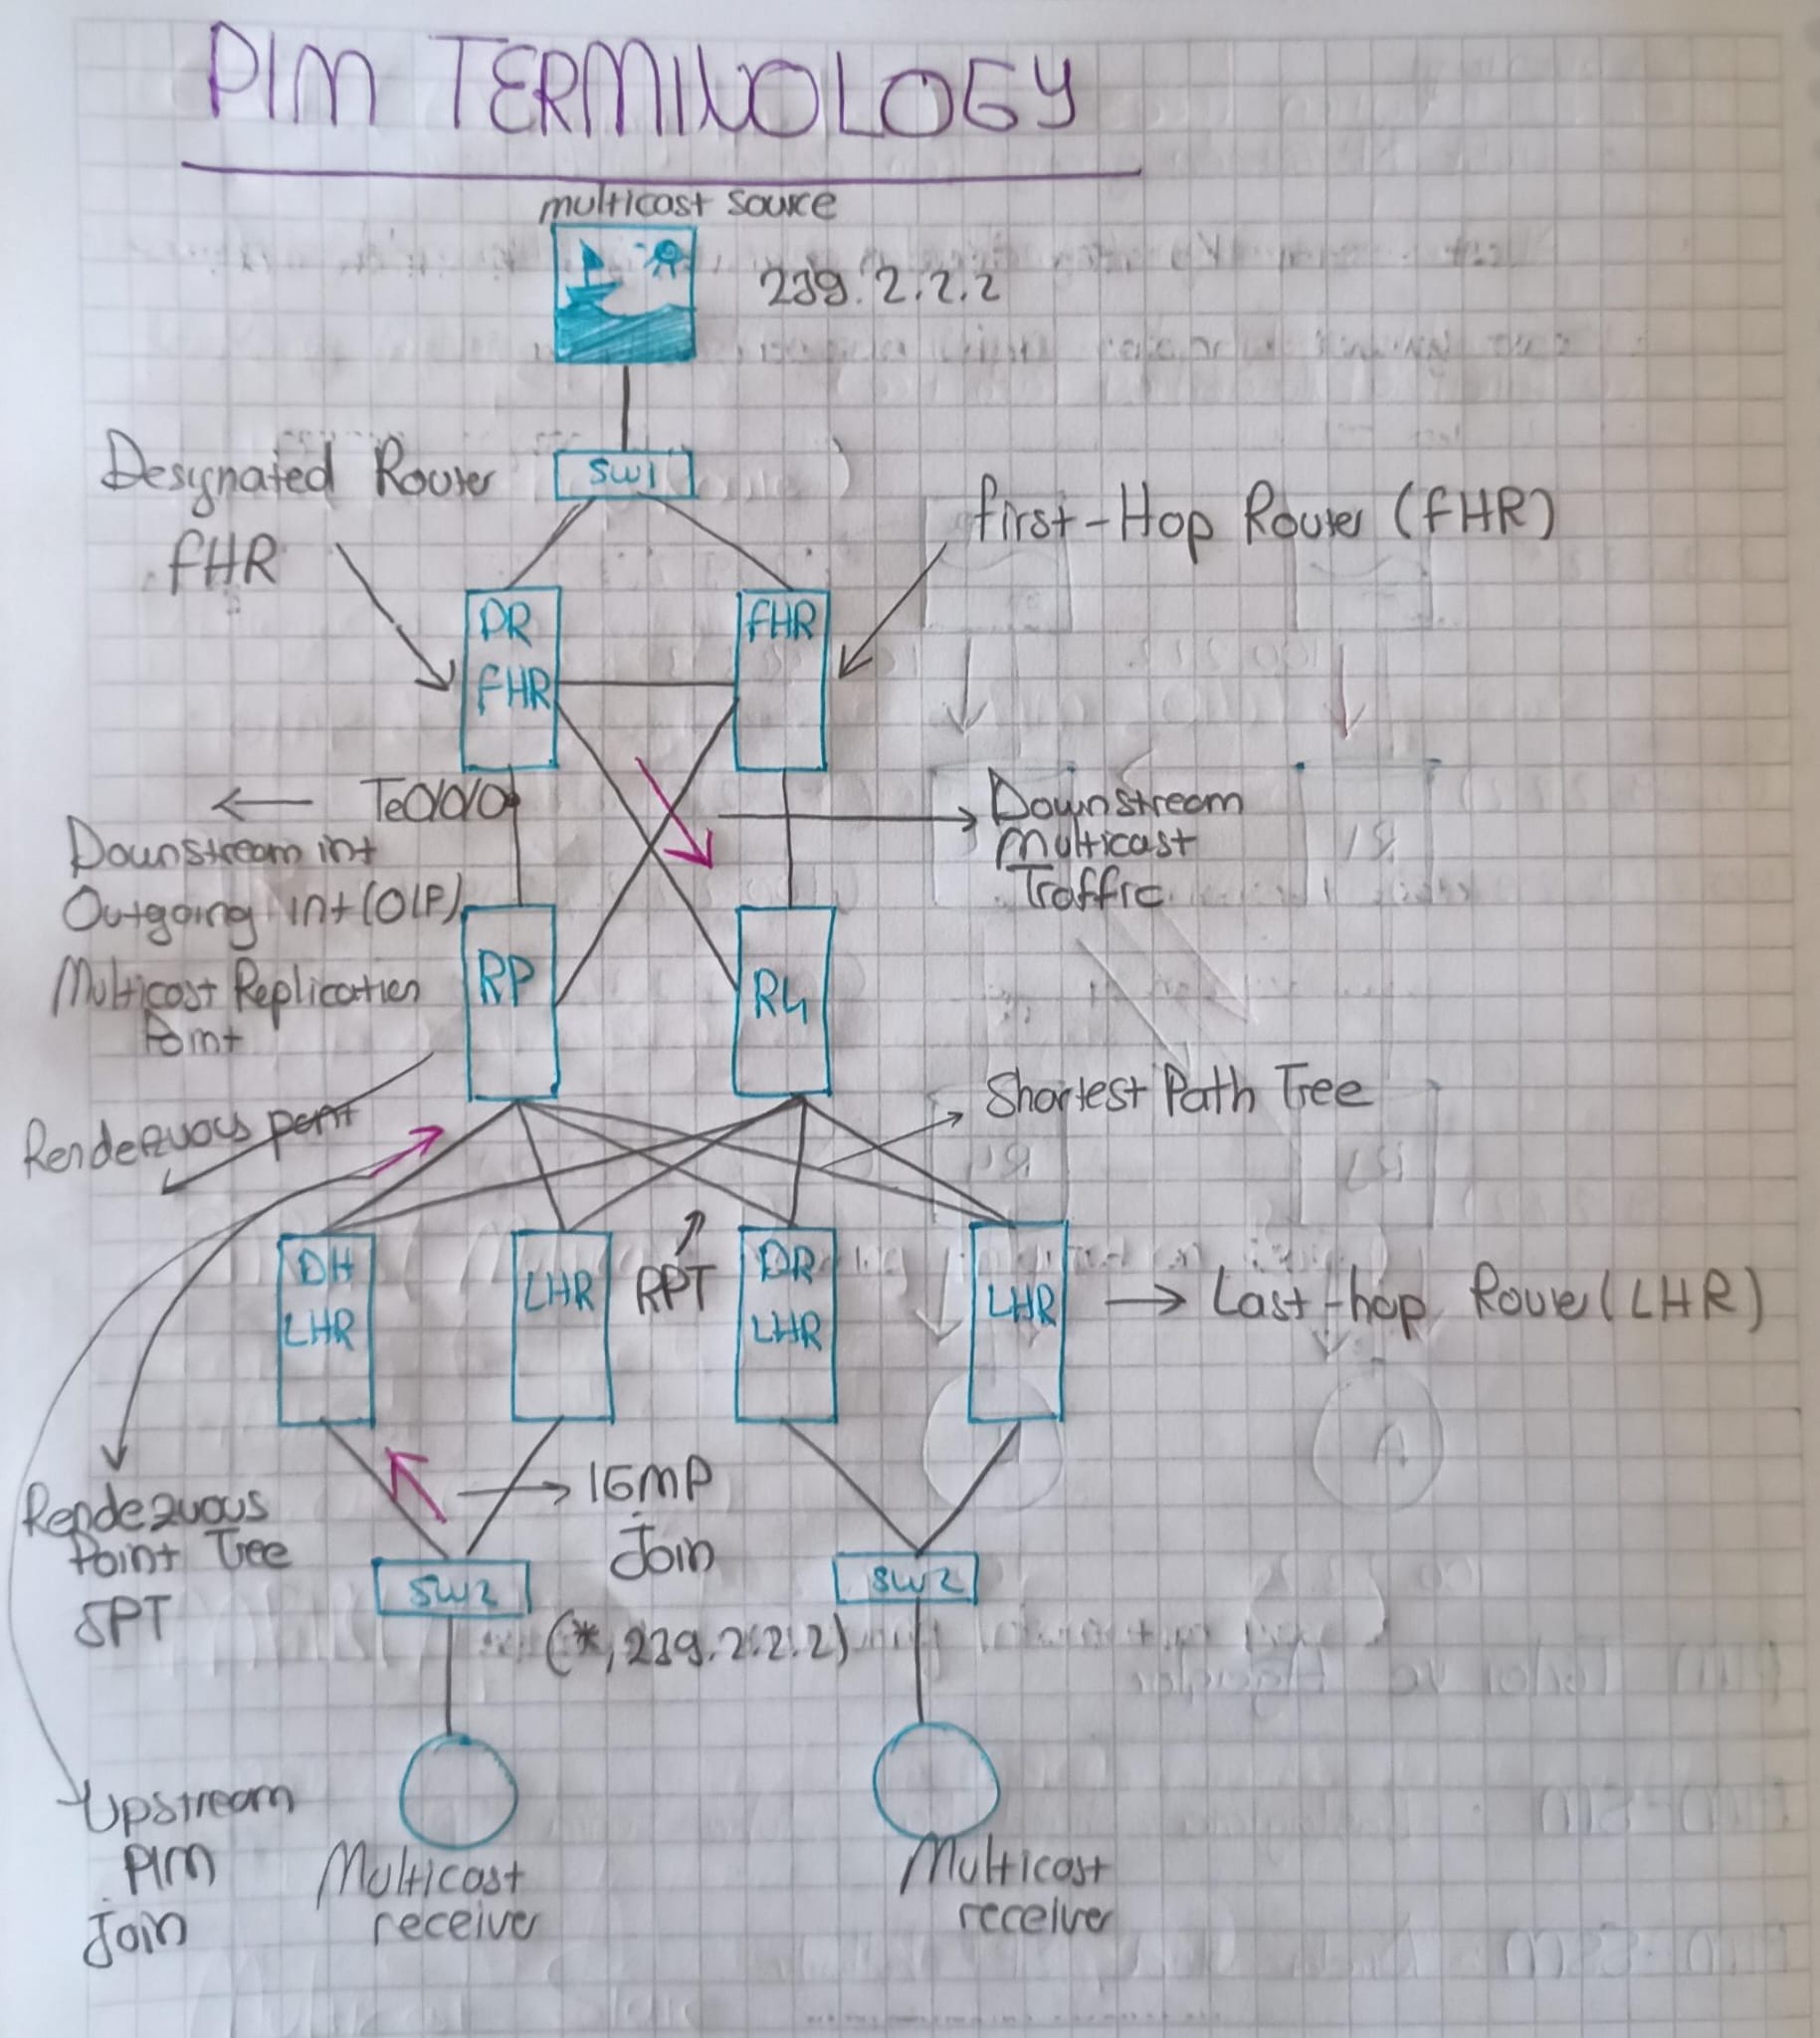 PIM TERMINOLOGY
multicast source
239.2.2.2
SW1
Designated Router
FHR
First-Hop Router (FHR)
DR
FHR
FHR
Te0/0/0
Downstream int
Outgoing int (OIF)
Multicast Replication
Point
Downstream
Multicast
Traffic
RP
R4
Rendezvous point
Shortest Path Tree
DH
LHR
LHR
RPT
DR
LHR
LHR
Last-hop Router (LHR)
Rendezvous
Point Tree
SPT
IGMP
Join
SW2
SW2
(*, 239.2.2.2)
Upstream
PIM
Join
Multicast
receiver
Multicast
receiver